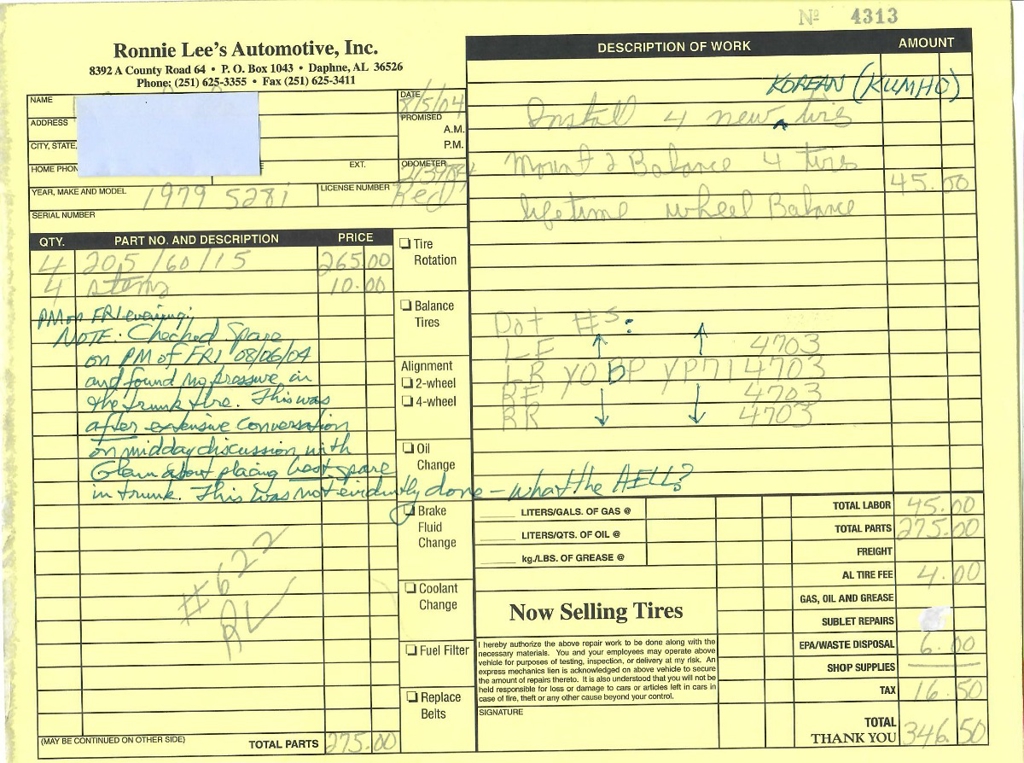 Nº 4313
Ronnie Lee's Automotive, Inc.
8392 A County Road 64 • P. O. Box 1043 • Daphne, AL 36526
Phone: (251) 625-3355 • Fax (251) 625-3411
NAME
DATE 8/5/04
ADDRESS
PROMISED
A.M.
P.M.
CITY, STATE,
HOME PHON
EXT.
ODOMETER
YEAR, MAKE AND MODEL 1979 528i
LICENSE NUMBER Red
SERIAL NUMBER
QTY. PART NO. AND DESCRIPTION PRICE
4 205/60/15 265.00
4 stems 10.00
PM on FRI evening;
NOTE: Checked Spare
on PM of FRI 08/06/04
and found no pressure in
the trunk tire. This was
after extensive conversation
on midday discussion with
Glenn about placing best spare
in trunk. This was not evidently done - what the HELL?
#622
RL
(MAY BE CONTINUED ON OTHER SIDE) TOTAL PARTS 275.00
Tire Rotation
Balance Tires
Alignment
2-wheel
4-wheel
Oil Change
Brake Fluid Change
Coolant Change
Fuel Filter
Replace Belts
DESCRIPTION OF WORK AMOUNT
KOREAN (KUMHO)
Install 4 new tires
Mount & Balance 4 tires
45.00
lifetime wheel Balance
Dot #s:
LF 4703
LR YOBP YP71 4703
RF 4703
RR 4703
LITERS/GALS. OF GAS @
LITERS/QTS. OF OIL @
kg./LBS. OF GREASE @
Now Selling Tires
I hereby authorize the above repair work to be done along with the
necessary materials. You and your employees may operate above
vehicle for purposes of testing, inspection, or delivery at my risk. An
express mechanics lien is acknowledged on above vehicle to secure
the amount of repairs thereto. It is also understood that you will not be
held responsible for loss or damage to cars or articles left in cars in
case of fire, theft or any other cause beyond your control.
SIGNATURE
TOTAL LABOR 45.00
TOTAL PARTS 275.00
FREIGHT
AL TIRE FEE 4.00
GAS, OIL AND GREASE
SUBLET REPAIRS
EPA/WASTE DISPOSAL 6.00
SHOP SUPPLIES
TAX 16.50
TOTAL
THANK YOU 346.50